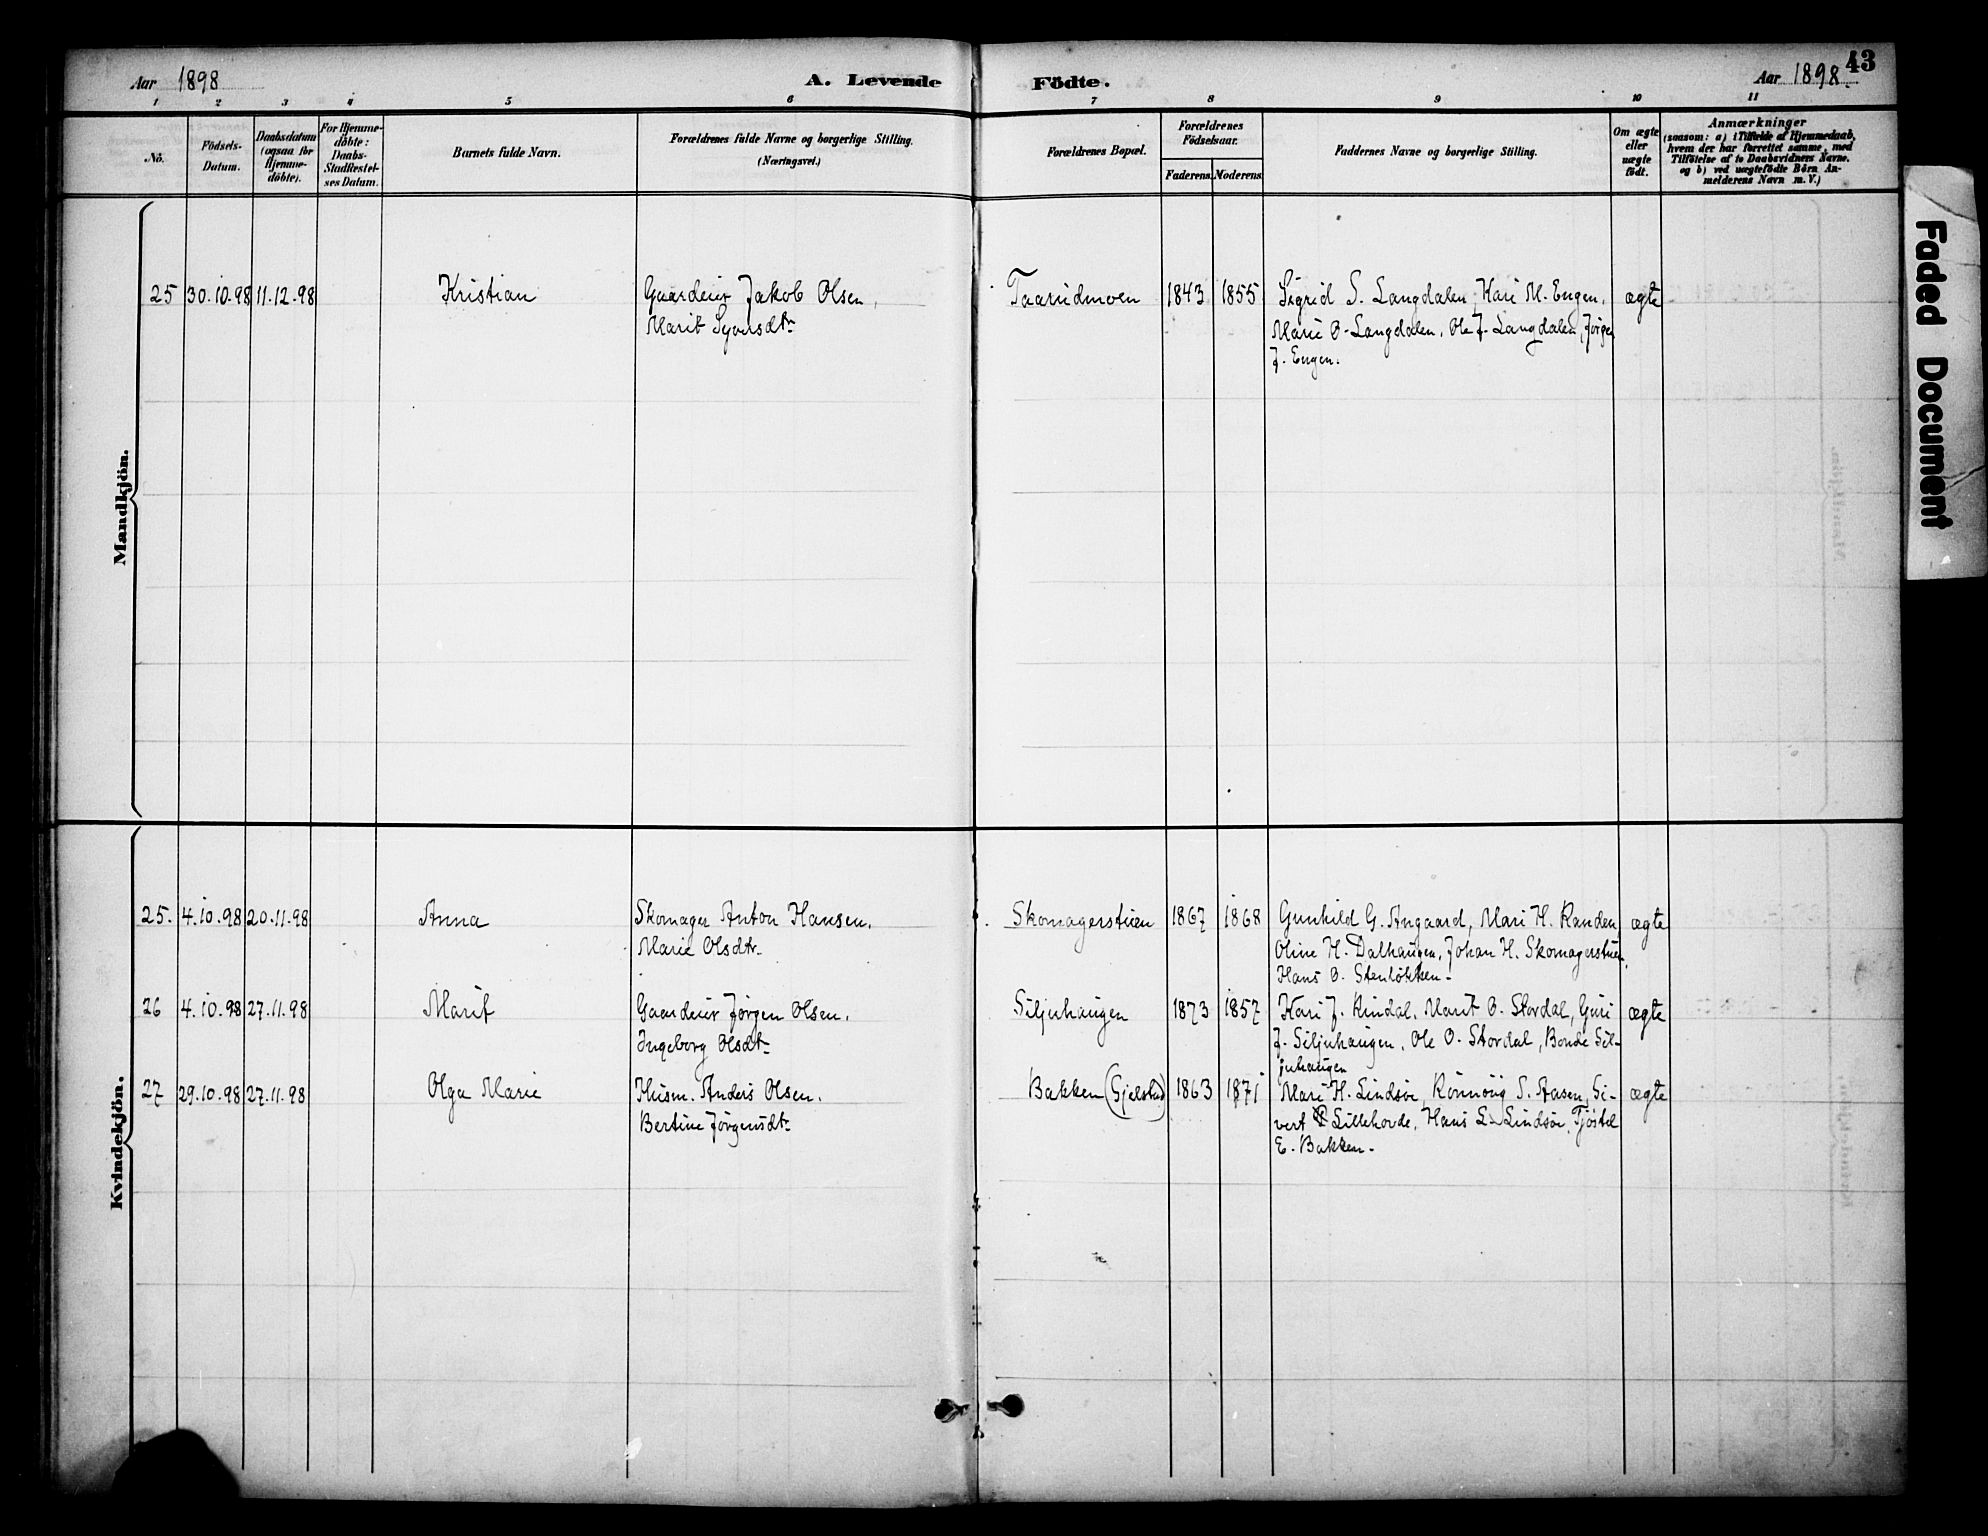 43
Aar 1898
A. Levende Födte.
Aar 1898
1 2 3 4 5 6 7 8 9 10 11
No.
Födsels-
Datum.
Daabsdatum
(ogsaa for
Hjemme-
döbte).
For Hjemme-
döbte:
Daabs-
Stadfæstel-
ses Datum.
Barnets fulde Navn.
Forældrenes fulde Navne og borgerlige Stilling.
(Næringsvei.)
Forældrenes Bopæl.
Forældrenes
Födselsaar.
Faderens. Moderens.
Faddernes Navne og borgerlige Stilling.
Om ægte
eller
uægte
födt.
Anmærkninger
(saasom: a) i Tilfælde af Hjemmedaab,
hvem der har forrettet samme, med
Tilföielse af to Daabsvidners Navne.
og b) ved uægtefödte Börn An-
melderens Navn m. V.)
Mandkjön.
25 30.10.98 11.12.98 Kristian Gaardeier Jakob Olsen, Taarudmoen 1843 1855 Sigrid S. Langdalen, Kari M. Engen, ægte
Marit Syversdtr. Marie O. Langdalen, Ole J. Langdalen, Jørgen
J. Engen.
Kvindekjön.
25. 4.10.98 20.11.98 Anna Skomager Anton Hansen, Skomagerstuen 1867 1868 Gunhild G. Angaard, Mari H. Randen, ægte
Marie Olsdtr. Oline H. Dalhaugen, Johan H. Skomagerstuen,
Hans O. Stenløkken.
26 4.10.98 27.11.98 Marit Gaardeier Jørgen Olsen, Siljuhaugen 1873 1857 Kari J. Rindal, Marit O. Stordal, Guri ægte
Ingeborg Olsdtr. J. Siljuhaugen, Ole O. Stordal, Bonde Sil-
juhaugen
27 29.10.98 27.11.98 Olga Marie Husm. Anders Olsen, Bakken (Gjelstad) 1863 1871 Mari H. Lindsøe, Rønnøug S. Aasen, Si- ægte
Bertine Jørgensdtr. vert Lillehovde, Hans L. Lindsøe, Tjøstel
E. Bakken.
Faded Document